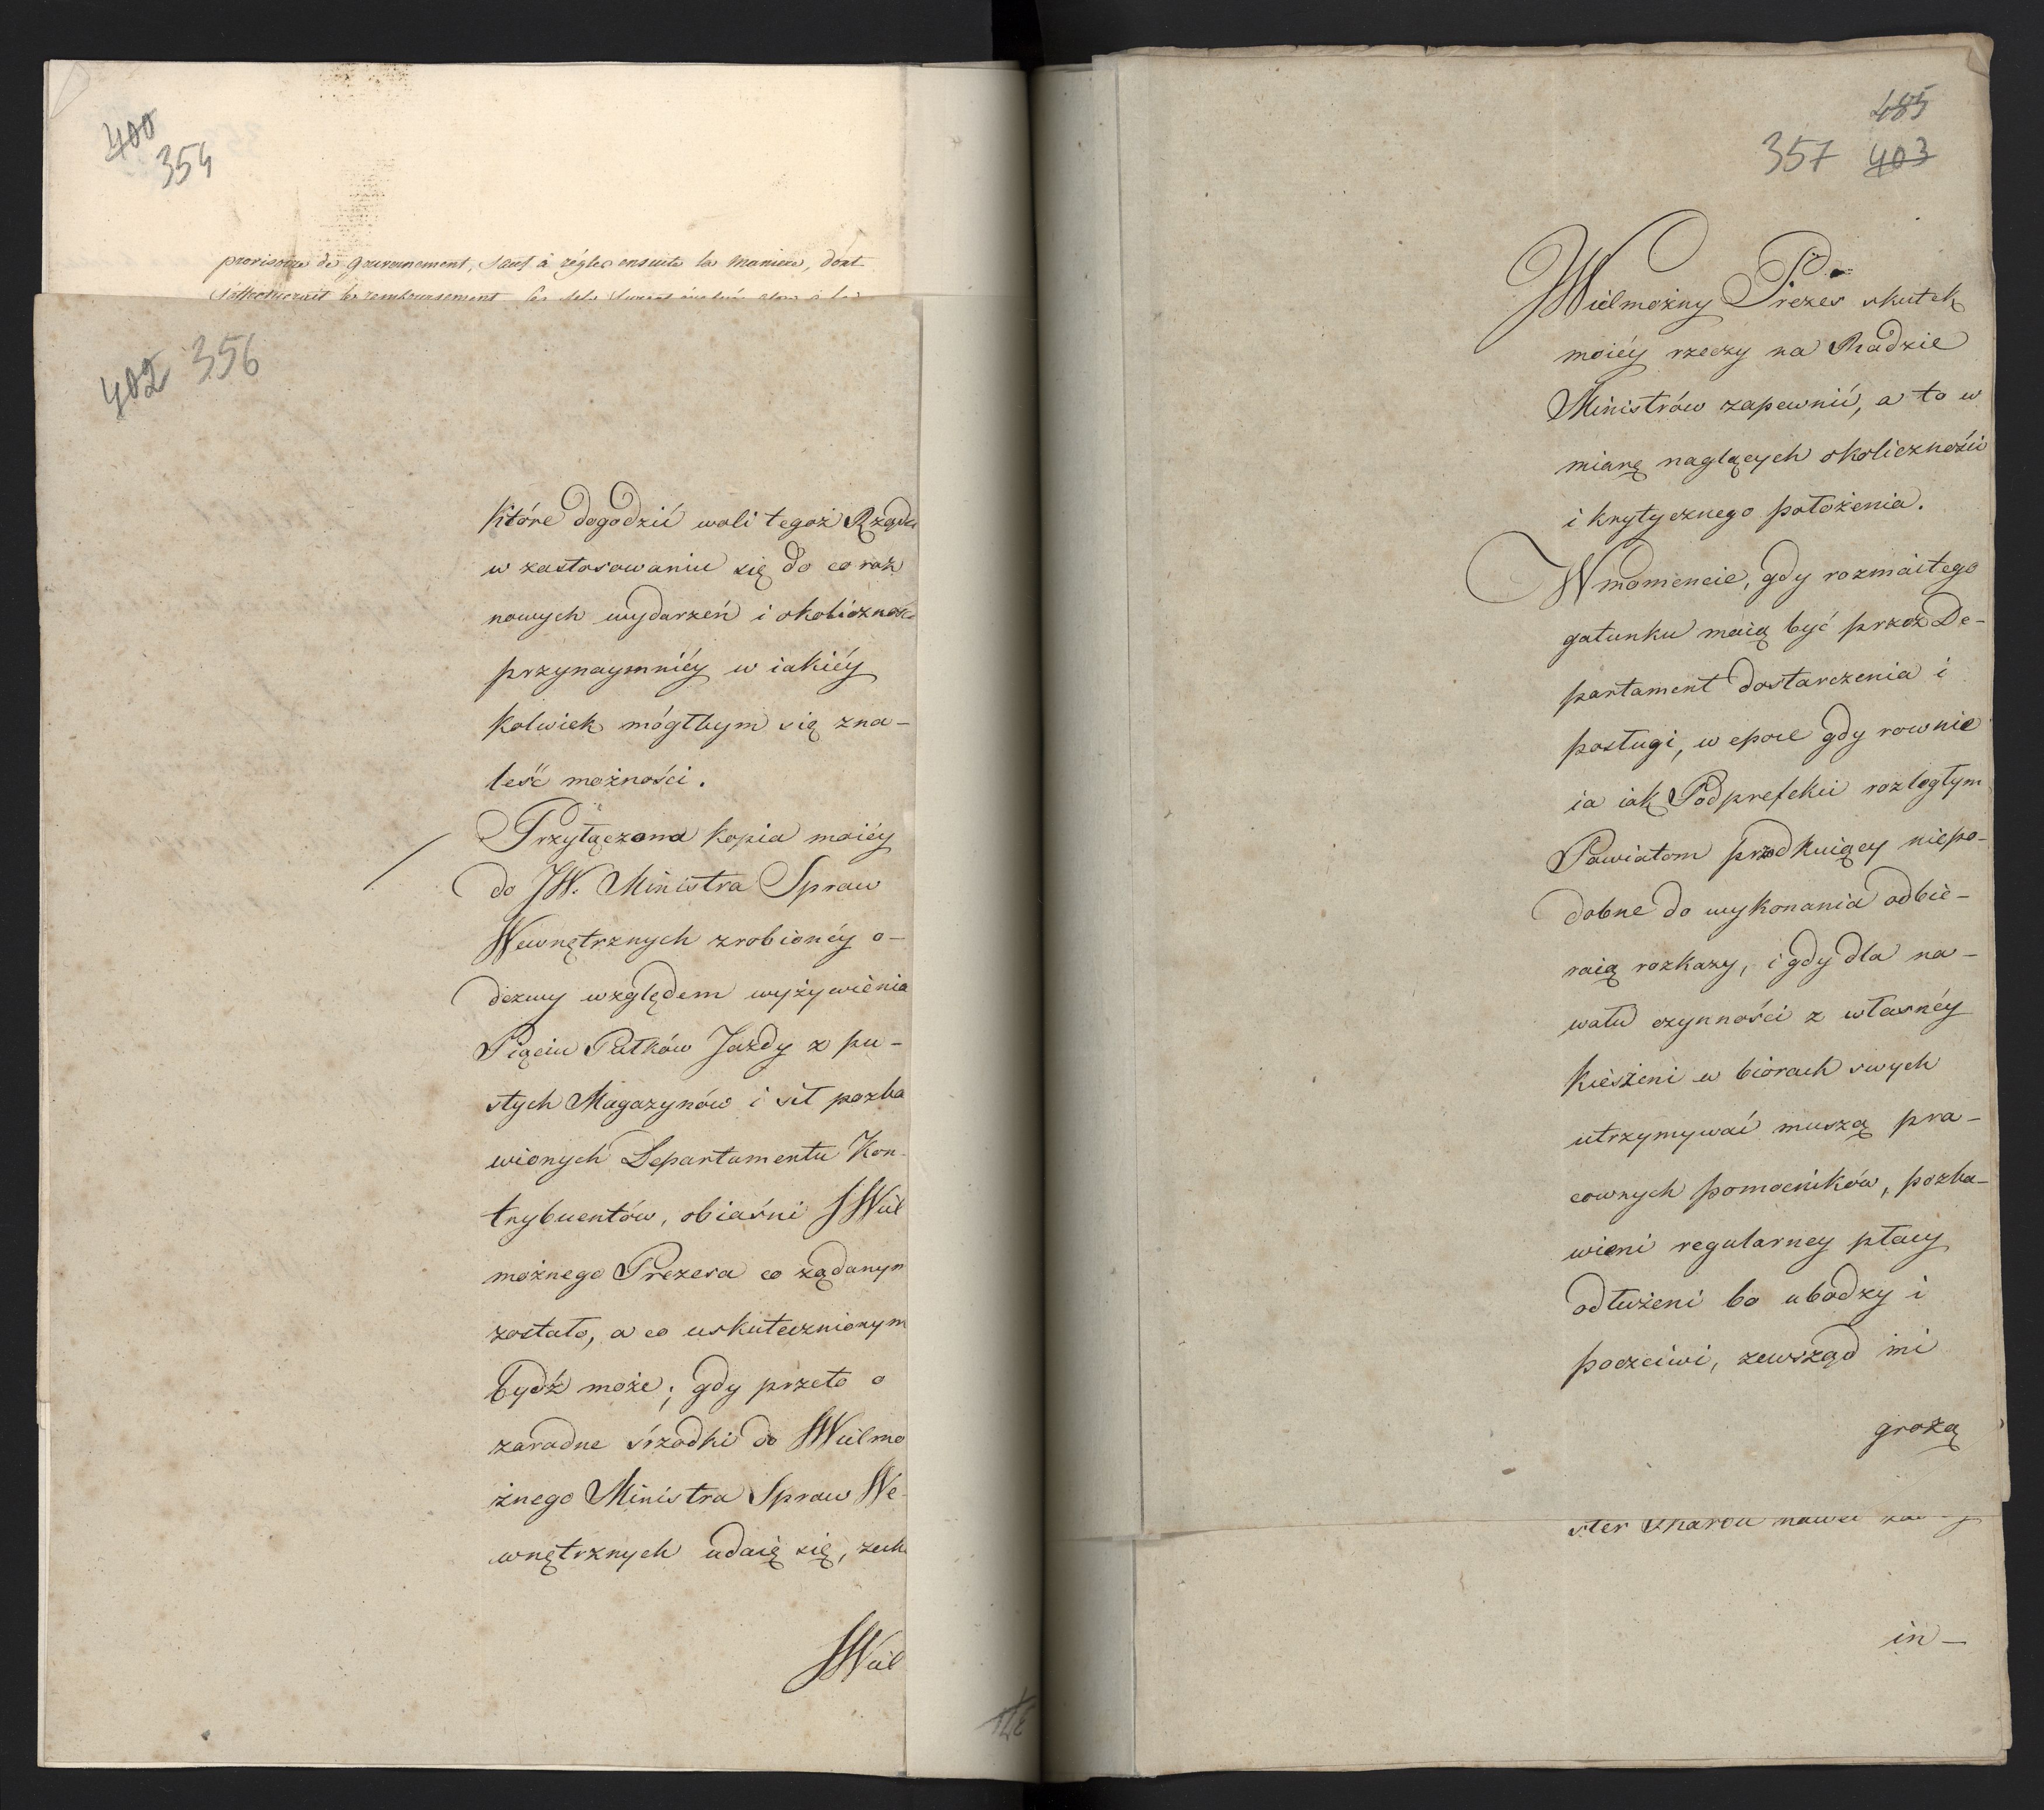 400
354
provisoire de gouvernement, sauf à régler ensuite la maniere, dont
remboursement
402 356
które dogodzić woli tegoż Rządu
w zastosowaniu się do co raz
nowych wydarzeń i okolicznośc
przynaymniéy w iakiéy
kolwiek mógłbym się zna-
leść możności.
Przyłączona kopia moiéy
do JW. Ministra Spraw
Wewnętrznych zrobionéy o-
dezwy względem wyżywienia
Pięciu Pułków Jazdy z pu-
stych Magazynów i sił pozba
wionych Departamentu Kon-
trybuentów, obiaśni JWiel
możnego Prezesa co żądanym
zostało, a co uskutecznionym
bydź może; gdy przeto o
zaradne śrzodki do JWielmo
żnego Ministra Spraw We-
wnętrznych udaię się, zech
JWiel
485
357 403
Wielmożny Prezes skutek
moiéy rzeczy na Radzie
Ministrów zapewnić, a to w
miarę naglących okoliczności
i krytycznego położenia.
W momencie, gdy rozmaitego
gatunku maią być przez De-
partament dostarczenia i
posługi, w epoce gdy rownie
ia iak Podprefekci rozległym
Powiatom przodkuiący niepo-
dobne do wykonania odbie-
raią rozkazy, i gdy dla na-
wału czynności z własnéy
kieszeni w biórach swych
utrzymywać muszą pra-
cownych pomocników, pozba-
wieni regularney płacy
odłużeni bo ubodzy i
poczciwi, zewsząd mi
grożą
ster Skarbu nawet
in-